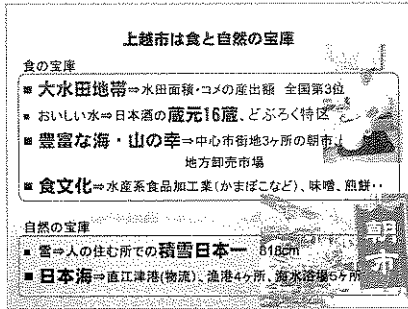 上越市は食と自然の宝庫
食の宝庫
■ 大水田地帯⇒水田面積・コメの産出額 全国第3位
■ おいしい水⇒日本酒の蔵元16蔵、どぶろく特区
■ 豊富な海・山の幸⇒中心市街地3ヶ所の朝市、
地方卸売市場
■ 食文化⇒水産系食品加工業(かまぼこなど)、味噌、煎餅・・
自然の宝庫
■ 雪⇒人の住む所での積雪日本一 818cm
■ 日本海⇒直江津港(物流)、漁港4ヶ所、海水浴場5ヶ所
朝市